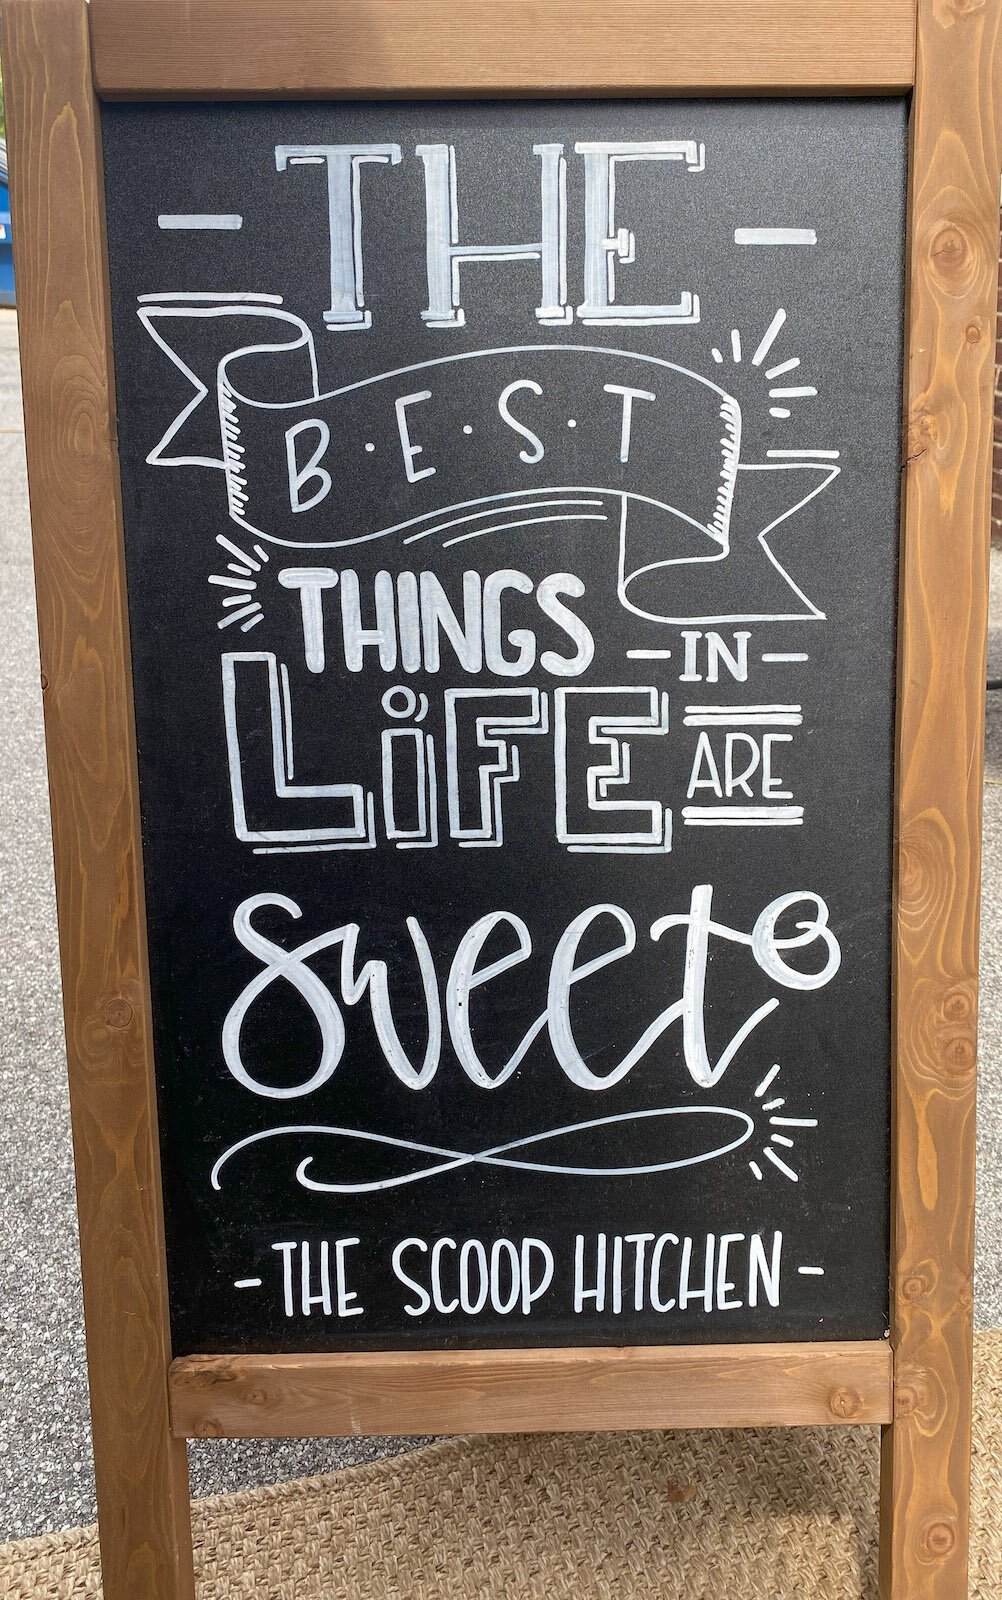 THE
B·E·S·T
THINGS
IN
LiFE
ARE
Sweet
- THE SCOOP HITCHEN -